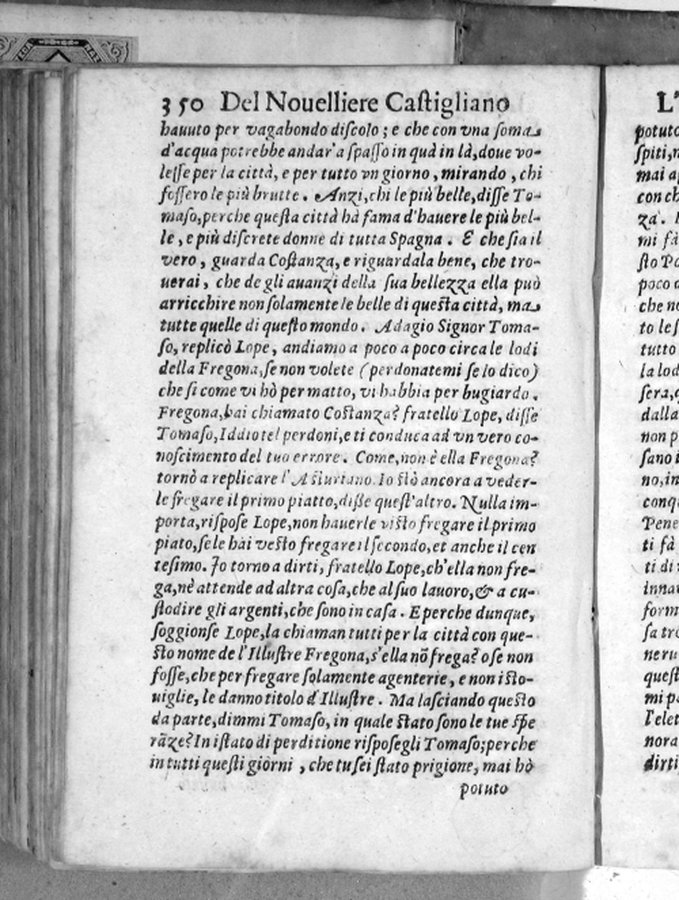 350 Del Nouelliere Castigliano
hauuto per vagabondo discolo; e che con vna soma
d'acqua potrebbe andar'a spasso in quà in là, doue vo-
lesse per la città, e per tutto vn giorno, mirando, chi
fossero le più brutte. Anzi, chi le più belle, disse To-
maso, perche questa città hà fama d'hauere le più bel-
le, e più discrete donne di tutta Spagna. E che sia il
vero, guarda Costanza, e riguardala bene, che tro-
uerai, che de gli auanzi della sua bellezza ella può
arricchire non solamente le belle di questa città, ma
tutte quelle di questo mondo. Adagio Signor Toma-
so, replicò Lope, andiamo a poco a poco circa le lodi
della Fregona, se non volete (perdonatemi se lo dico)
che si come vi hò per matto, vi habbia per bugiardo.
Fregona, hai chiamato Costanza? fratello Lope, disse
Tomaso, Iddio tel perdoni, e ti conduca ad vn vero co-
noscimento del tuo errore. Come, non è ella Fregona?
tornò a replicare l'Asturiano. Io stò ancora a veder-
le fregare il primo piatto, disse quest'altro. Nulla im-
porta, rispose Lope, non hauerle visto fregare il primo
piato, se le hai vesto fregare il secondo, et anche il cen
tesimo. Io torno a dirti, fratello Lope, ch'ella non fre-
ga, nè attende ad altra cosa, che al suo lauoro, & a cu-
stodire gli argenti, che sono in casa. E perche dunque,
soggionse Lope, la chiaman tutti per la città con que-
sto nome de l'Illustre Fregona, s'ella nõ frega? o se non
fosse, che per fregare solamente agenterie, e non isto-
uiglie, le danno titolo d'Illustre. Ma lasciando questo
da parte, dimmi Tomaso, in quale stato sono le tue spe
rãze? In istato di perditione risposegli Tomaso; perche
in tutti questi giorni, che tu sei stato prigione, mai hò
potuto
L'
potuto
spiti, n
mai a
con ch
za.
mi fà
sto Po
poco a
che no
to le s
tutto
la lod
sera, 
dalla
non p
sano i
no, in
conqu
Pene
ti fà
ti di
innar
form
sa tro
ne ru
quest
mi pa
l'elet
nora
dirti